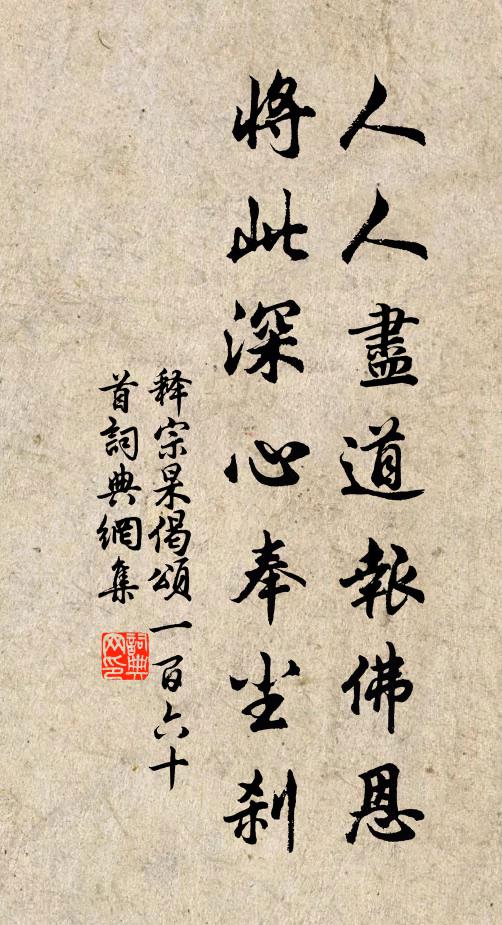 人人盡道報佛恩
將此深心奉尘刹
释宗杲偈頌一百六十
首詞典網集
詞典网印